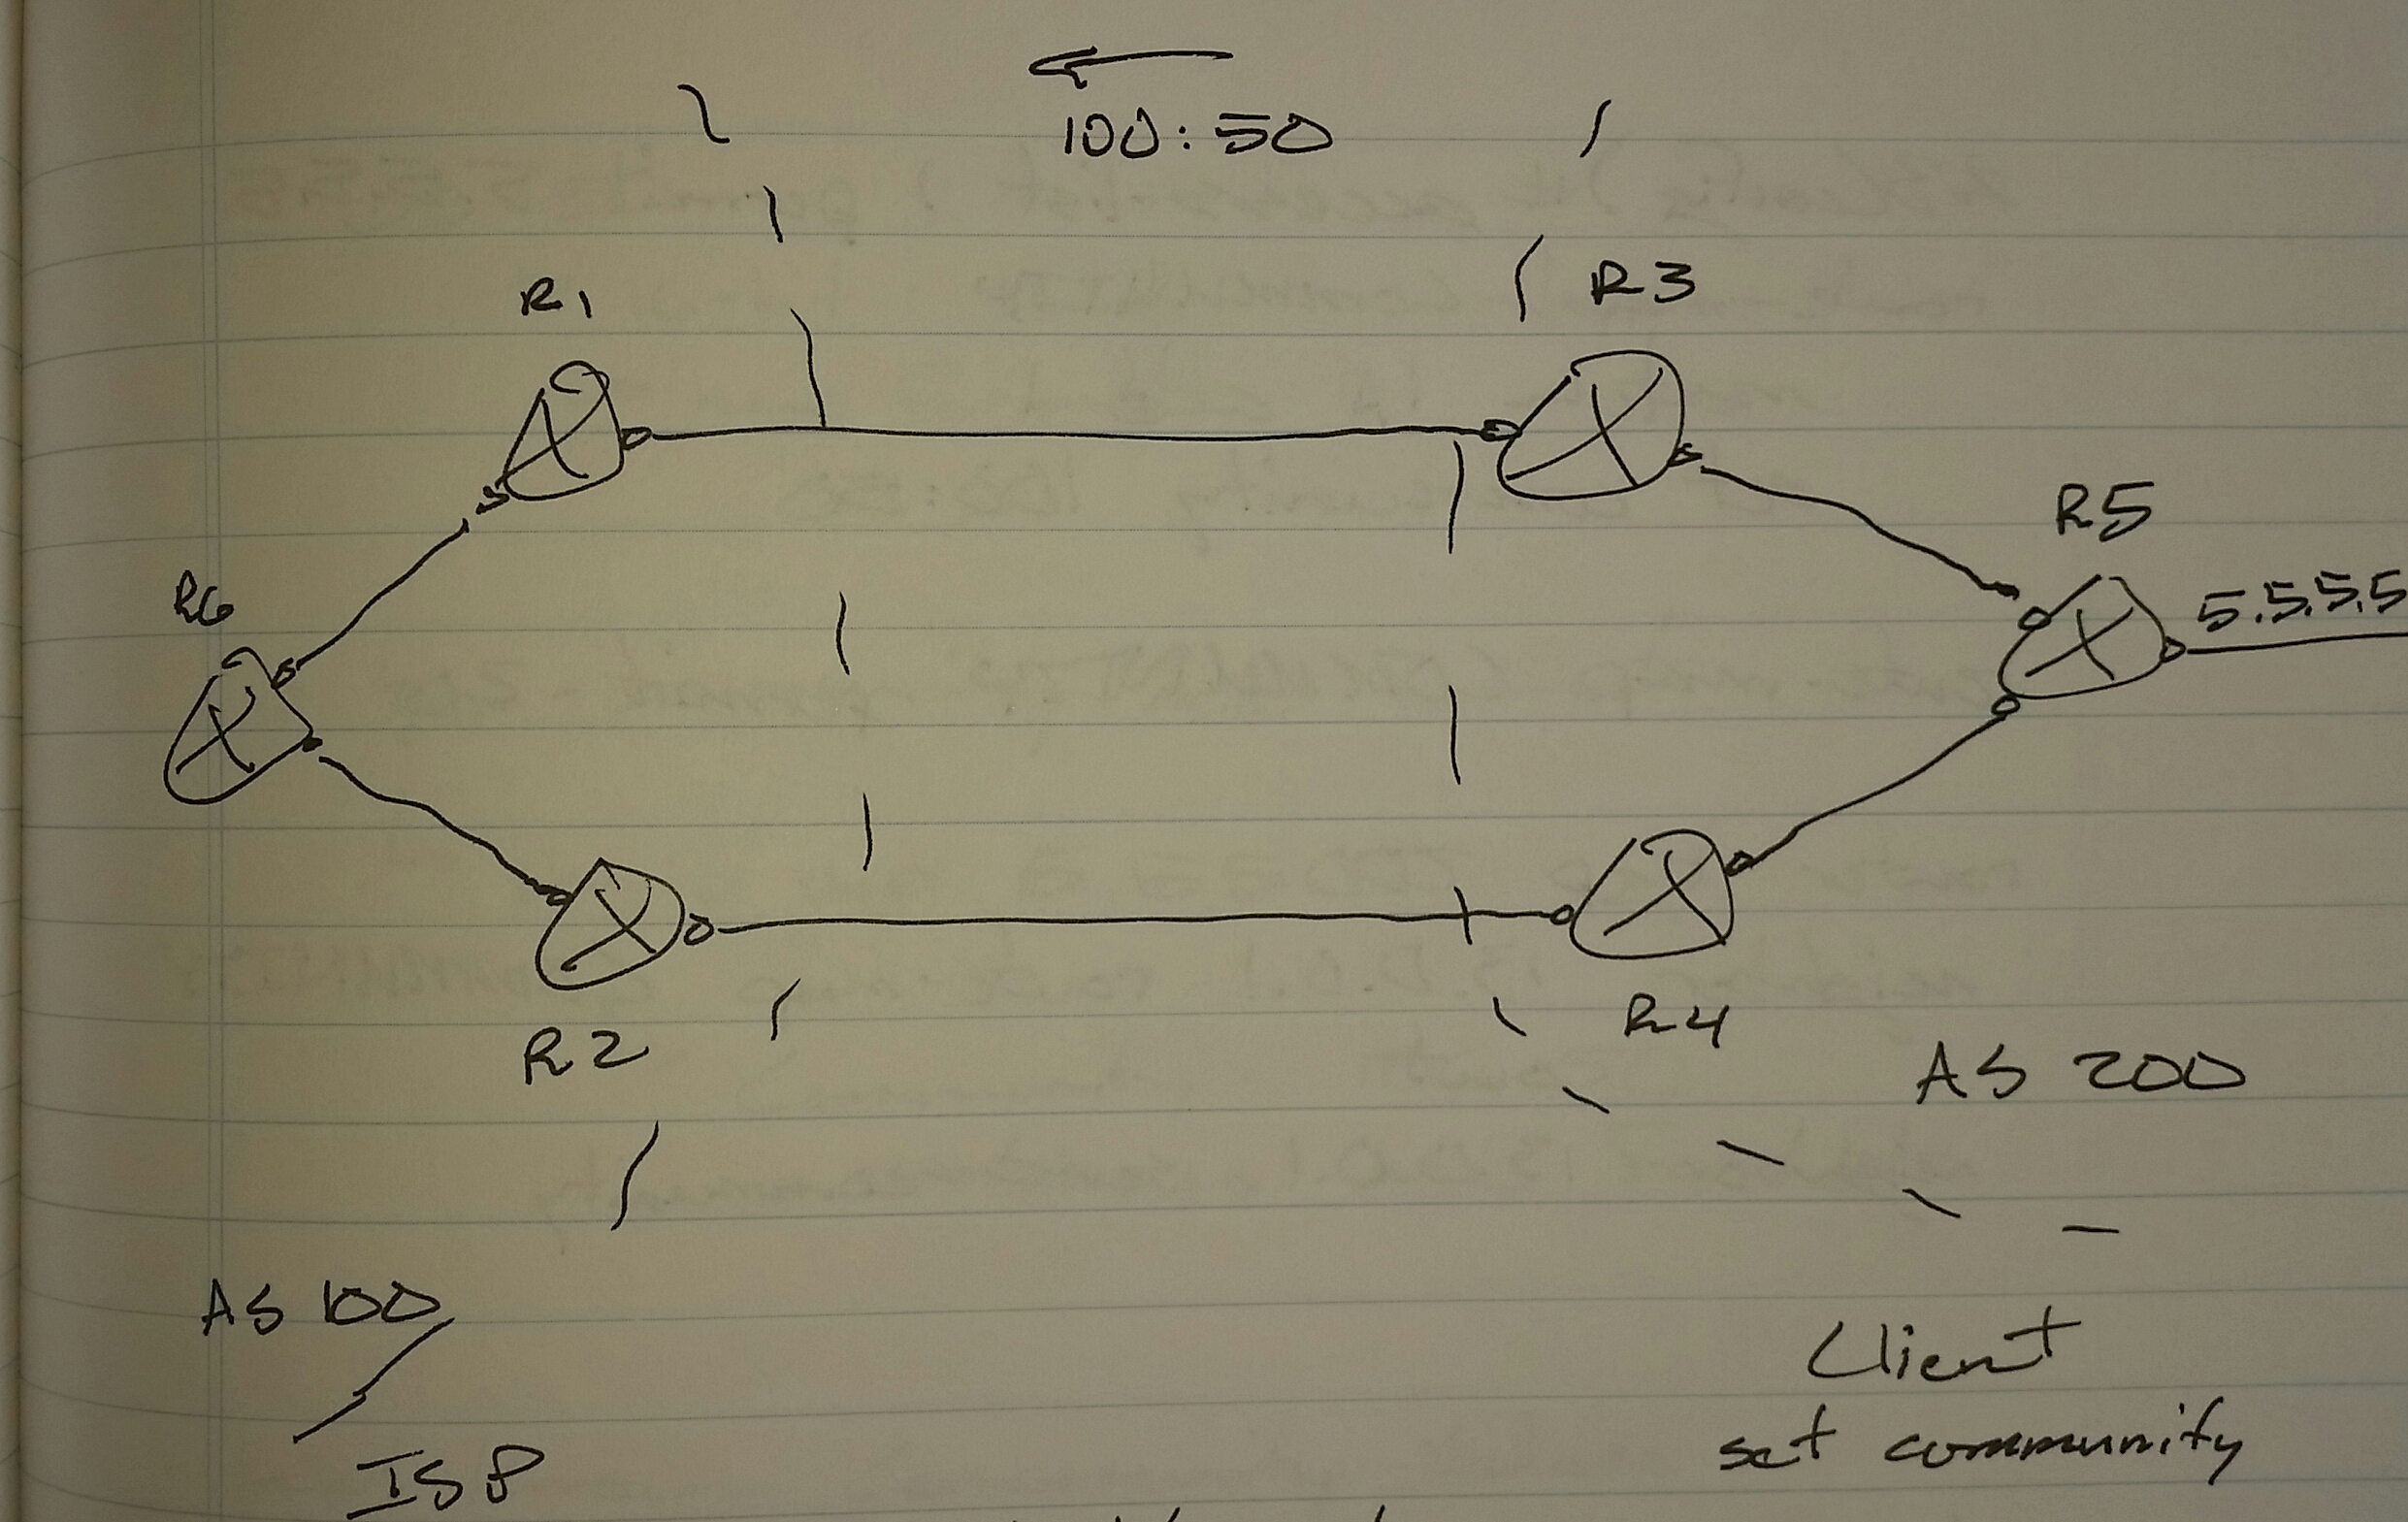 100:50
R1
R3
R5
R6
5.5.5.5
R2
R4
AS 200
AS 100
Client
set community
ISP